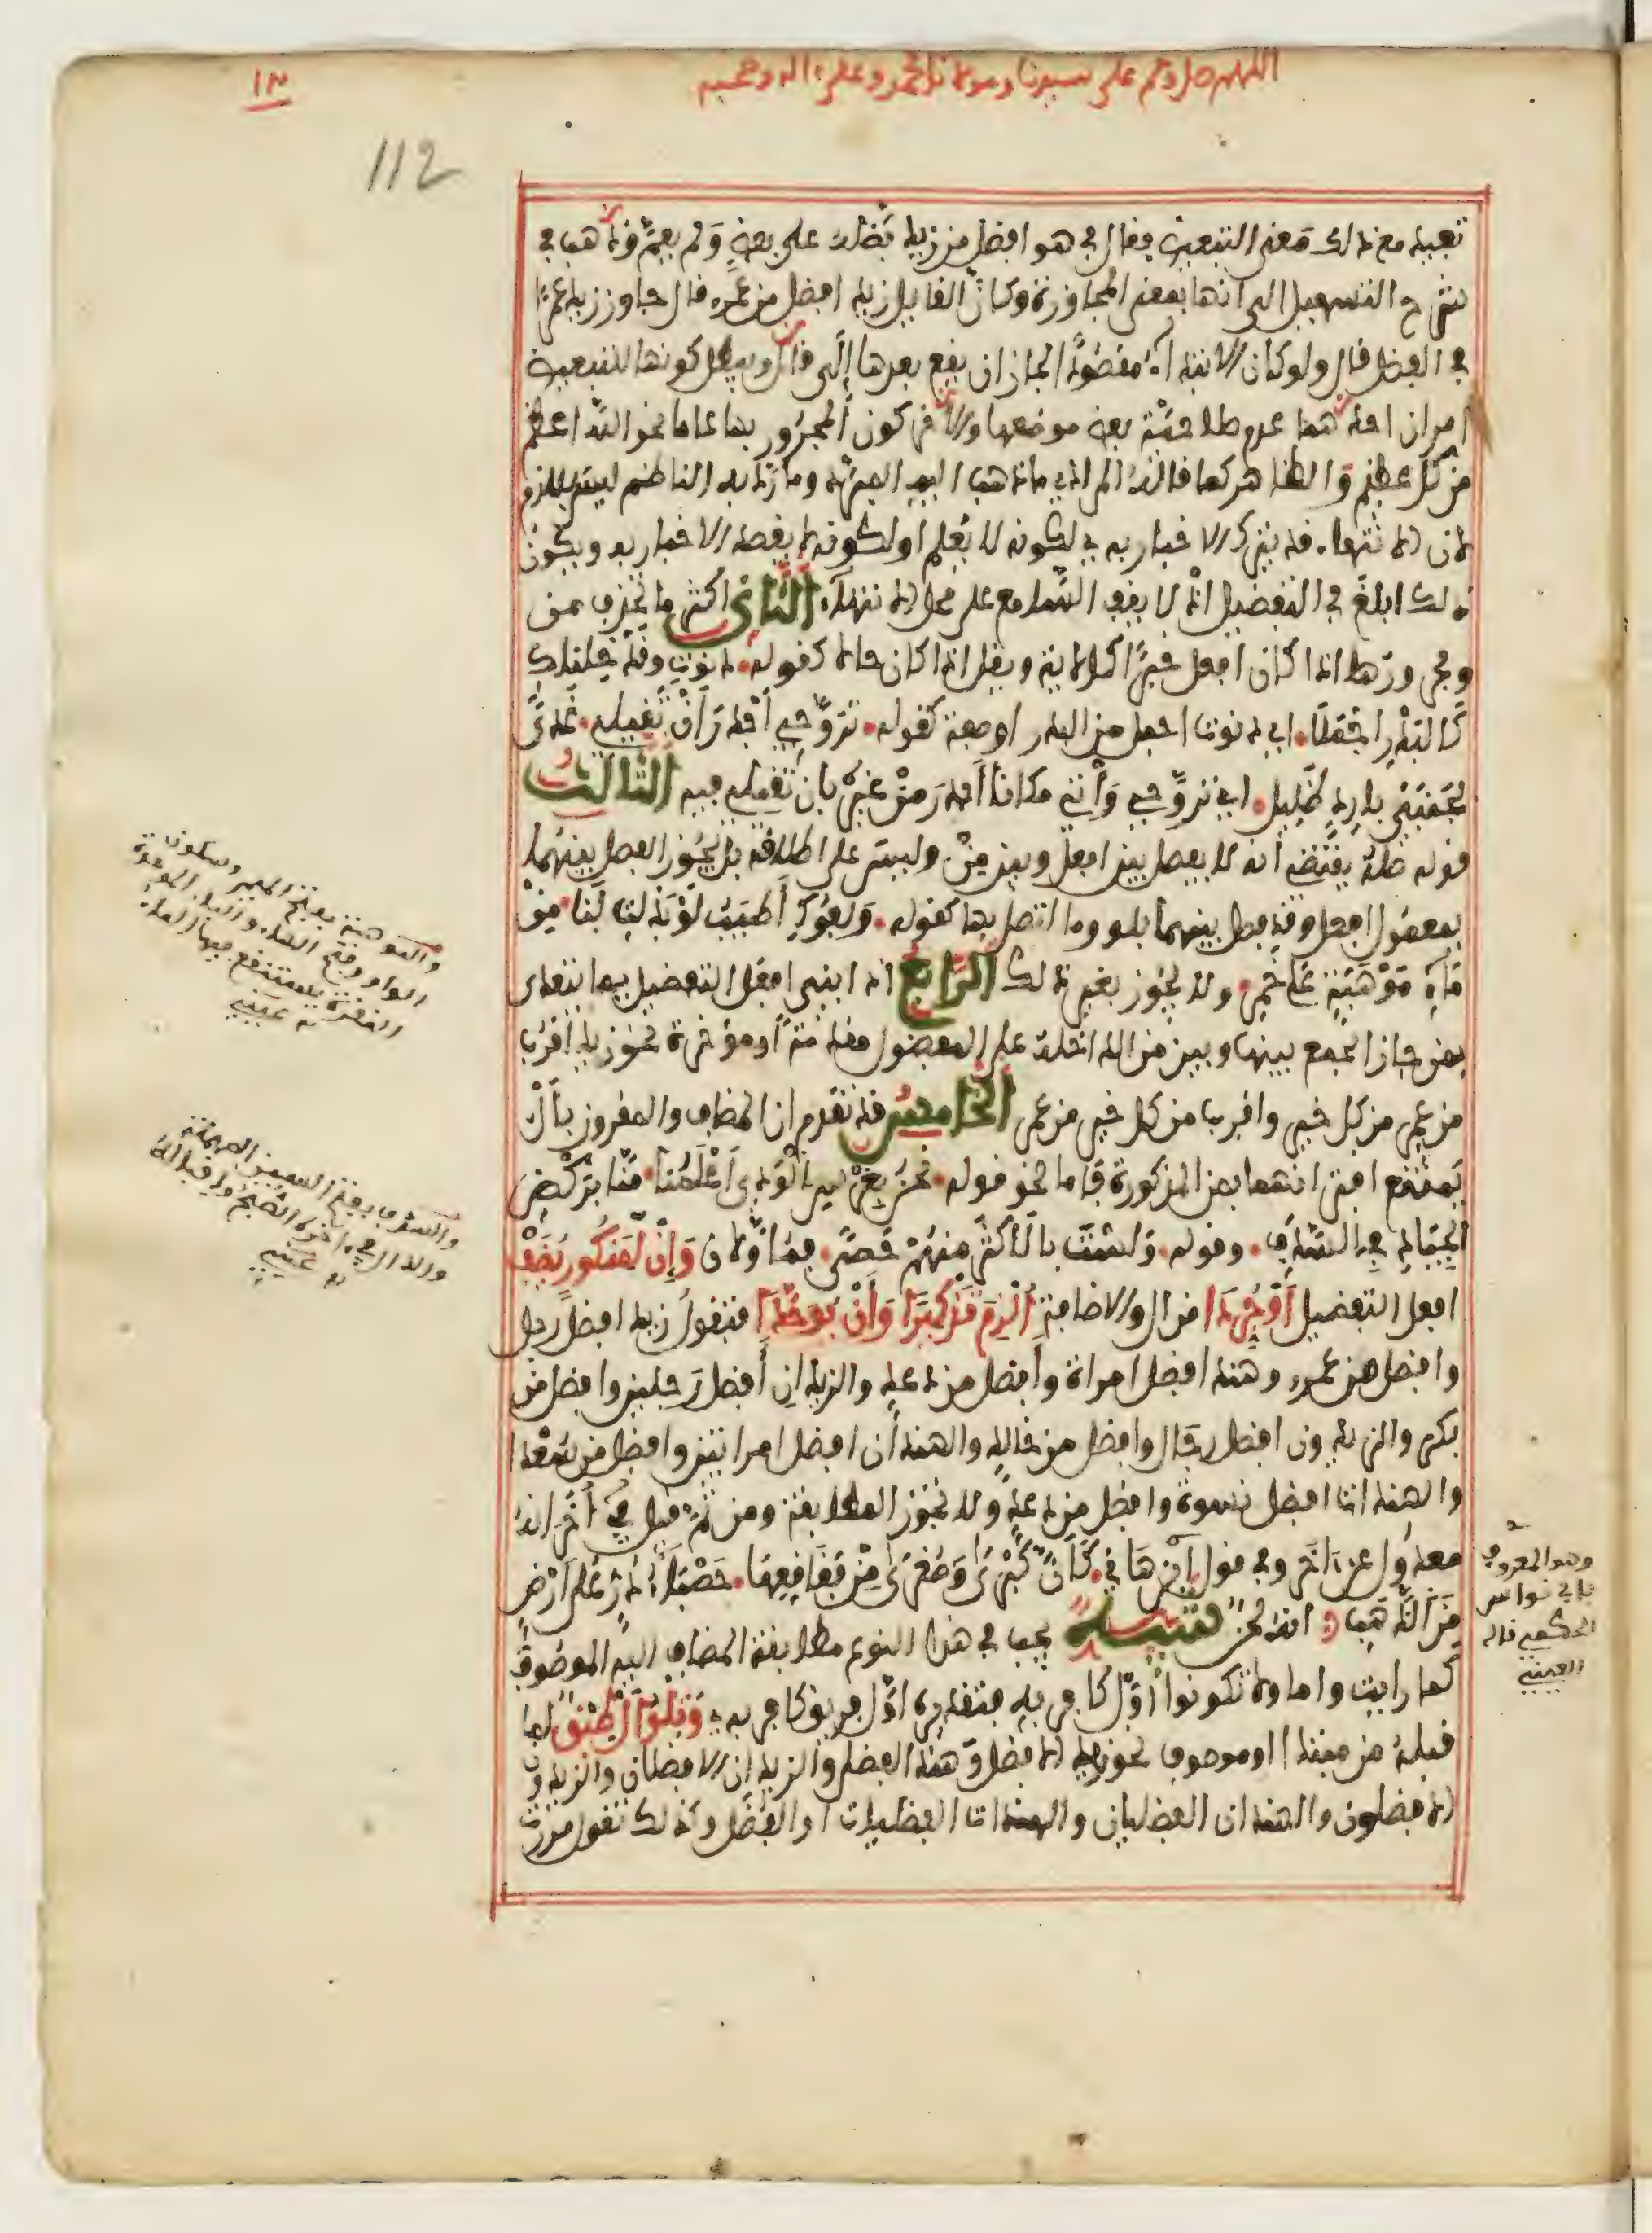 اللهم صل وسلم على سيدنا ومولانا محمد وعلى ءاله وصحبه
١٣
112
تفيد مع ذلك معنى التبعيض فقال في هو افضل من زيد فضله على بعض ولم يعم وذهب في
شرح التسهيل الى انها بمعنى المجاوزة وكأن القايل زيد افضل من عمرو قال جاوز زيد عمرا
في الفضل قال ولو كان الابتداء مقصودا لجاز ان يقع بعدها إلى قال ويبطل كونها للتبعيض
امران احدهما عدم صلاحية بعض موضعها والاخر كون المجرور بها عاما نحو الله اعظم
من كل عظيم والظاهر كما قاله المرادي ما ذهب اليه المبرد وما رد به الناظم ليس بلازم
لان الانتهاء قد يترك الاخبار به لكونه لا يعلم او لكونه لا يقصد الاخبار به ويكون
ذلك ابلغ في التفضيل اذ لا يقف السامع على محل الانتهاء الثاني اكثر ما تحذف من
ومجرورها اذا كان افعل خبرا كالاية ويقل اذا كان حالا كقوله دنوت وقد خلناك
كالبدر اجملا اي دنوت اجمل من البدر او صفة كقوله تروحي أجدر أن تقيلي غدا
بجنبي بارد ظليل اي تروحي وأتي مكانا أجدر من غيره بان تقيلي فيه الثالث
قوله صله يقتضي انه لا يفصل بين افعل وبين من وليس على اطلاقه بل يجوز الفصل بينهما
بمعمول افعل وقد فصل بينهما بلو وما اتصل بها كقوله ولفوك أطيب لو بذلت لنا من
ماء موهبة على خمر ولا يجوز بغير ذلك الرابع اذا بني افعل التفضيل مما يتعدى
بمن جاز الجمع بينها وبين من الداخلة على المفضول مقدمة أو مؤخرة نحو زيد أقرب
من عمرو من كل خير واقرب من كل خير من عمرو الخامس قد تقدم ان المضاف والمقرون بأل
يمتنع اقترانهما بمن المذكورة فاما نحو قوله نحن بغرس الودي أعلمنا منا بركض
الجياد في السدف وقوله ولست بالأكثر منهم حصى فمأولان وإن لمنكور يضف
افعل التفضيل أو جردا من ال والاضافة ألزم تذكيرا وأن يوحدا فتقول زيد افضل رجل
وافضل من عمرو وهند افضل امراة وأفضل من دعد والزيدان أفضل رجلين وافضل من
بكر والزيدون افضل رجال وافضل من خالد والهندان افضل امراتين وافضل من سعدا
والهندات افضل نسوة وافضل من دعد ولا تجوز المطابقة ومن ثم قيل في أخر انه
معدول عن اخر وفي قول ابن هاني كأن كبرى وصغرى من فقاقعها حصباء در على أرض
من الذهب انه لحن تنبيه يجب في هذا النوع مطابقة المضاف اليه الموصوف
كما رايت واما ولا تكونوا أول كافر به فتقديره اول فريق كافر به وتلو أل طبق لما
قبله من مبتدا او موصوف نحو زيد الافضل وهند الفضلى والزيدان الافضلان والزيدون
الافضلون والهندان الفضليان والهندات الفضليات او الفضل وكذلك تقول مررت
والموهبة بفتح الميم وسكون
الواو وفتح الهاء والباء الموحدة
النقرة يستنقع فيها الماء
ه عيني
والسدف بفتح السين المهملة
والدال وفي ءاخره الصبح واقباله
ه عيني
وهو المعروف
بابي نواس
الحكمي قاله
العيني